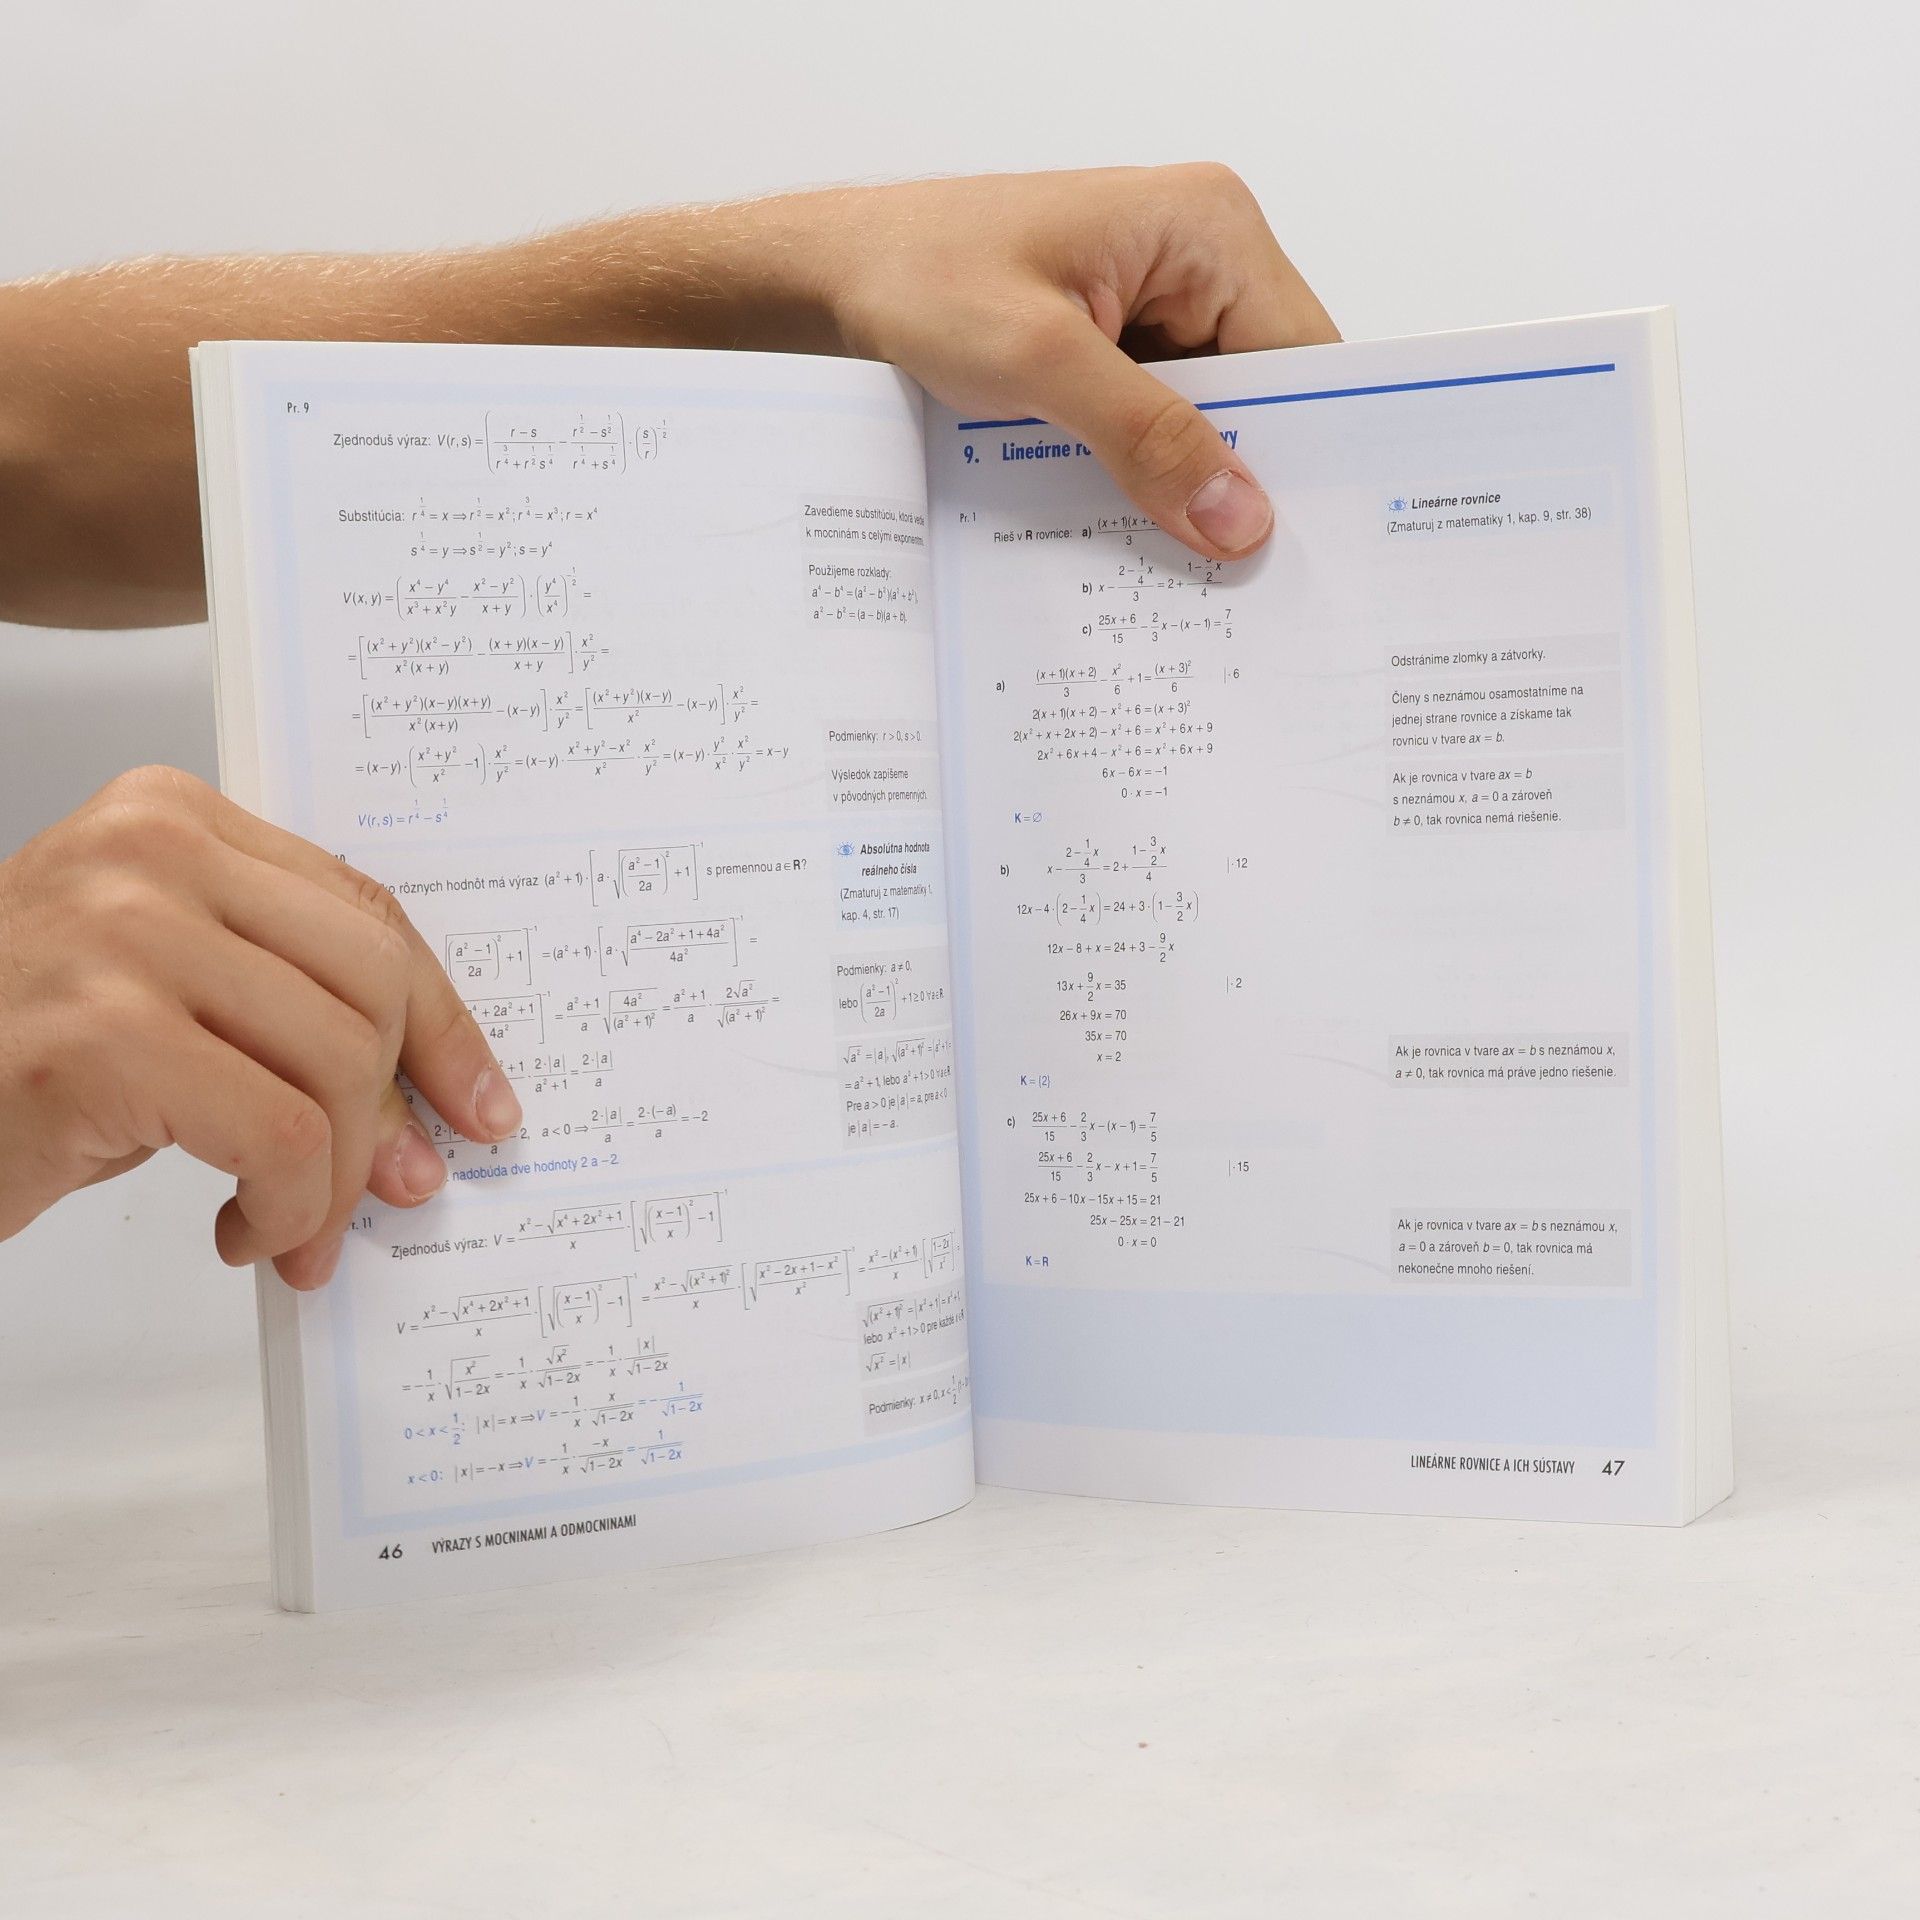 Pr. 9
Zjednoduš výraz: V(r, s) = ((r – s)/(r^(3/4) + r^(1/2) s^(1/4)) – (r^(1/2) – s^(1/2))/(r^(1/4) + s^(1/4))) · (s/r)^(–1/2)
Substitúcia: r^(1/4) = x ⇒ r^(1/2) = x²; r^(3/4) = x³; r = x⁴
s^(1/4) = y ⇒ s^(1/2) = y²; s = y⁴
Zavedieme substitúciu, ktorá vedie
k mocninám s celými exponentmi.
Použijeme rozklady:
a⁴ – b⁴ = (a² – b²)(a² + b²),
a² – b² = (a – b)(a + b).
V(x, y) = ((x⁴ – y⁴)/(x³ + x²y) – (x² – y²)/(x + y)) · (y⁴/x⁴)^(–1/2) =
= [(x² + y²)(x² – y²)/(x²(x + y)) – (x + y)(x – y)/(x + y)] · x²/y² =
= [(x² + y²)(x – y)(x + y)/(x²(x + y)) – (x – y)] · x²/y² = [(x² + y²)(x – y)/x² – (x – y)] · x²/y² =
= (x – y) · ((x² + y²)/x² – 1) · x²/y² = (x – y) · (x² + y² – x²)/x² · x²/y² = (x – y) · y²/x² · x²/y² = x – y
Podmienky: r > 0, s > 0.
Výsledok zapíšeme
v pôvodných premenných.
V(r, s) = r^(1/4) – s^(1/4)
rôznych hodnôt má výraz (a² + 1) · [a · √(((a² – 1)/2a)² + 1)]⁻¹ s premennou a ∈ R?
Absolútna hodnota
reálneho čísla
(Zmaturuj z matematiky 1,
kap. 4, str. 17)
√(((a² – 1)/2a)² + 1)]⁻¹ = (a² + 1) · [a · √((a⁴ – 2a² + 1 + 4a²)/4a²)]⁻¹ =
+ 2a² + 1)/4a²]⁻¹ = (a² + 1)/a · √(4a²/(a² + 1)²) = (a² + 1)/a · 2√a²/√(a² + 1)² =
+ 1 · 2·|a|/(a² + 1) = 2·|a|/a
2, a < 0 ⇒ 2·|a|/a = 2·(–a)/a = –2
nadobúda dve hodnoty 2 a –2
Podmienky: a ≠ 0,
lebo ((a² – 1)/2a)² + 1 ≥ 0 ∀a∈R
√a² = |a|, √(a² + 1)² = |a² + 1| =
= a² + 1, lebo a² + 1 > 0 ∀a∈R
Pre a > 0 je |a| = a, pre a < 0
je |a| = – a.
r. 11
Zjednoduš výraz: V = (x² – √(x⁴ + 2x² + 1))/x · [√(((x – 1)/x)² – 1)]⁻¹
V = (x² – √(x⁴ + 2x² + 1))/x · [√(((x – 1)/x)² – 1)]⁻¹ = (x² – √(x² + 1)²)/x · [√((x² – 2x + 1 – x²)/x²)]⁻¹ = (x² – (x² + 1))/x · [√((1 – 2x)/x²)]⁻¹ =
= –1/x · √(x²/(1 – 2x)) = –1/x · √x²/√(1 – 2x) = –1/x · |x|/√(1 – 2x)
0 < x < 1/2: |x| = x ⇒ V = –1/x · x/√(1 – 2x) = –1/√(1 – 2x)
x < 0: |x| = –x ⇒ V = –1/x · –x/√(1 – 2x) = 1/√(1 – 2x)
√(x² + 1)² = |x² + 1| = x² + 1,
lebo x² + 1 > 0 pre každé x ∈ R
√x² = |x|
Podmienky: x ≠ 0, x < 1/2
46 VÝRAZY S MOCNINAMI A ODMOCNINAMI
9. Lineárne
Pr. 1
Rieš v R rovnice: a) (x + 1)(x +
3
b) x – (2 – 1/4 x)/3 = 2 + (1 – 3/2 x)/4
c) (25x + 6)/15 – 2/3 x – (x – 1) = 7/5
Lineárne rovnice
(Zmaturuj z matematiky 1, kap. 9, str. 38)
a) (x + 1)(x + 2)/3 – x²/6 + 1 = (x + 3)²/6 | · 6
2(x + 1)(x + 2) – x² + 6 = (x + 3)²
2(x² + x + 2x + 2) – x² + 6 = x² + 6x + 9
2x² + 6x + 4 – x² + 6 = x² + 6x + 9
6x – 6x = –1
0 · x = –1
K = ∅
Odstránime zlomky a zátvorky.
Členy s neznámou osamostatníme na
jednej strane rovnice a získame tak
rovnicu v tvare ax = b.
Ak je rovnica v tvare ax = b
s neznámou x, a = 0 a zároveň
b ≠ 0, tak rovnica nemá riešenie.
b) x – (2 – 1/4 x)/3 = 2 + (1 – 3/2 x)/4 | · 12
12x – 4 · (2 – 1/4 x) = 24 + 3 · (1 – 3/2 x)
12x – 8 + x = 24 + 3 – 9/2 x
13x + 9/2 x = 35 | · 2
26x + 9x = 70
35x = 70
x = 2
K = {2}
Ak je rovnica v tvare ax = b s neznámou x,
a ≠ 0, tak rovnica má práve jedno riešenie.
c) (25x + 6)/15 – 2/3 x – (x – 1) = 7/5
(25x + 6)/15 – 2/3 x – x + 1 = 7/5 | · 15
25x + 6 – 10x – 15x + 15 = 21
25x – 25x = 21 – 21
0 · x = 0
K = R
Ak je rovnica v tvare ax = b s neznámou x,
a = 0 a zároveň b = 0, tak rovnica má
nekonečne mnoho riešení.
LINEÁRNE ROVNICE A ICH SÚSTAVY 47